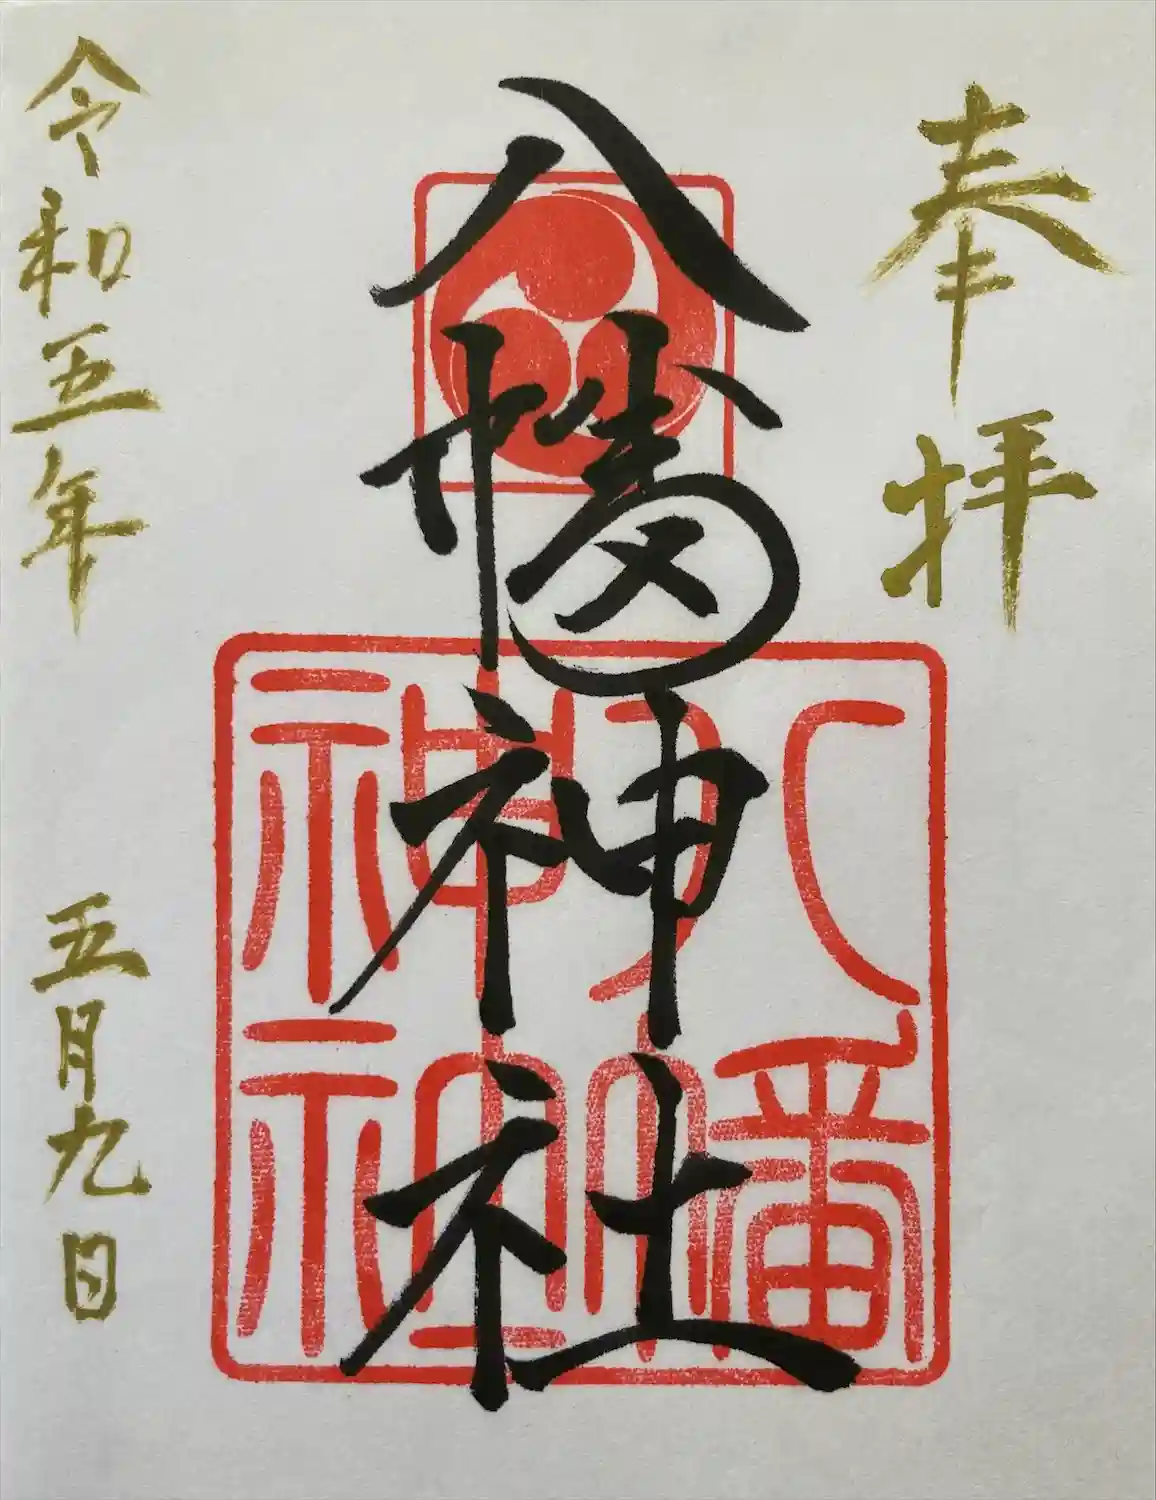 奉拝
八幡神社
八幡
神社
令和五年 五月九日